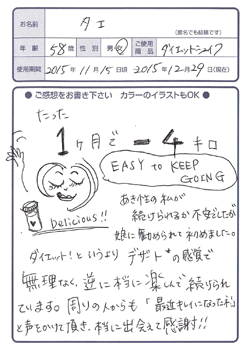 お名前 タエ (匿名でも結構です)
年齢 58歳 性別 男・女 ご使用商品 ダイエットシェイク
使用期間 2015年11月15日頃 2015年12月29日(現在)
● ご感想をお書き下さい カラーのイラストもOK ●
たった
1ヶ月で -4キロ
EASY to KEEP GOING
Delicious!!
あき性の私が
続けられるか不安でしたが
娘に勧められて初めました。
ダイエット!というよりデザートの感覚で
無理なく、逆に本当に楽しんで続けられ
ています。周りの人からも「最近キレイになったネ」
と声をかけて頂き、本当に出会えて感謝!!